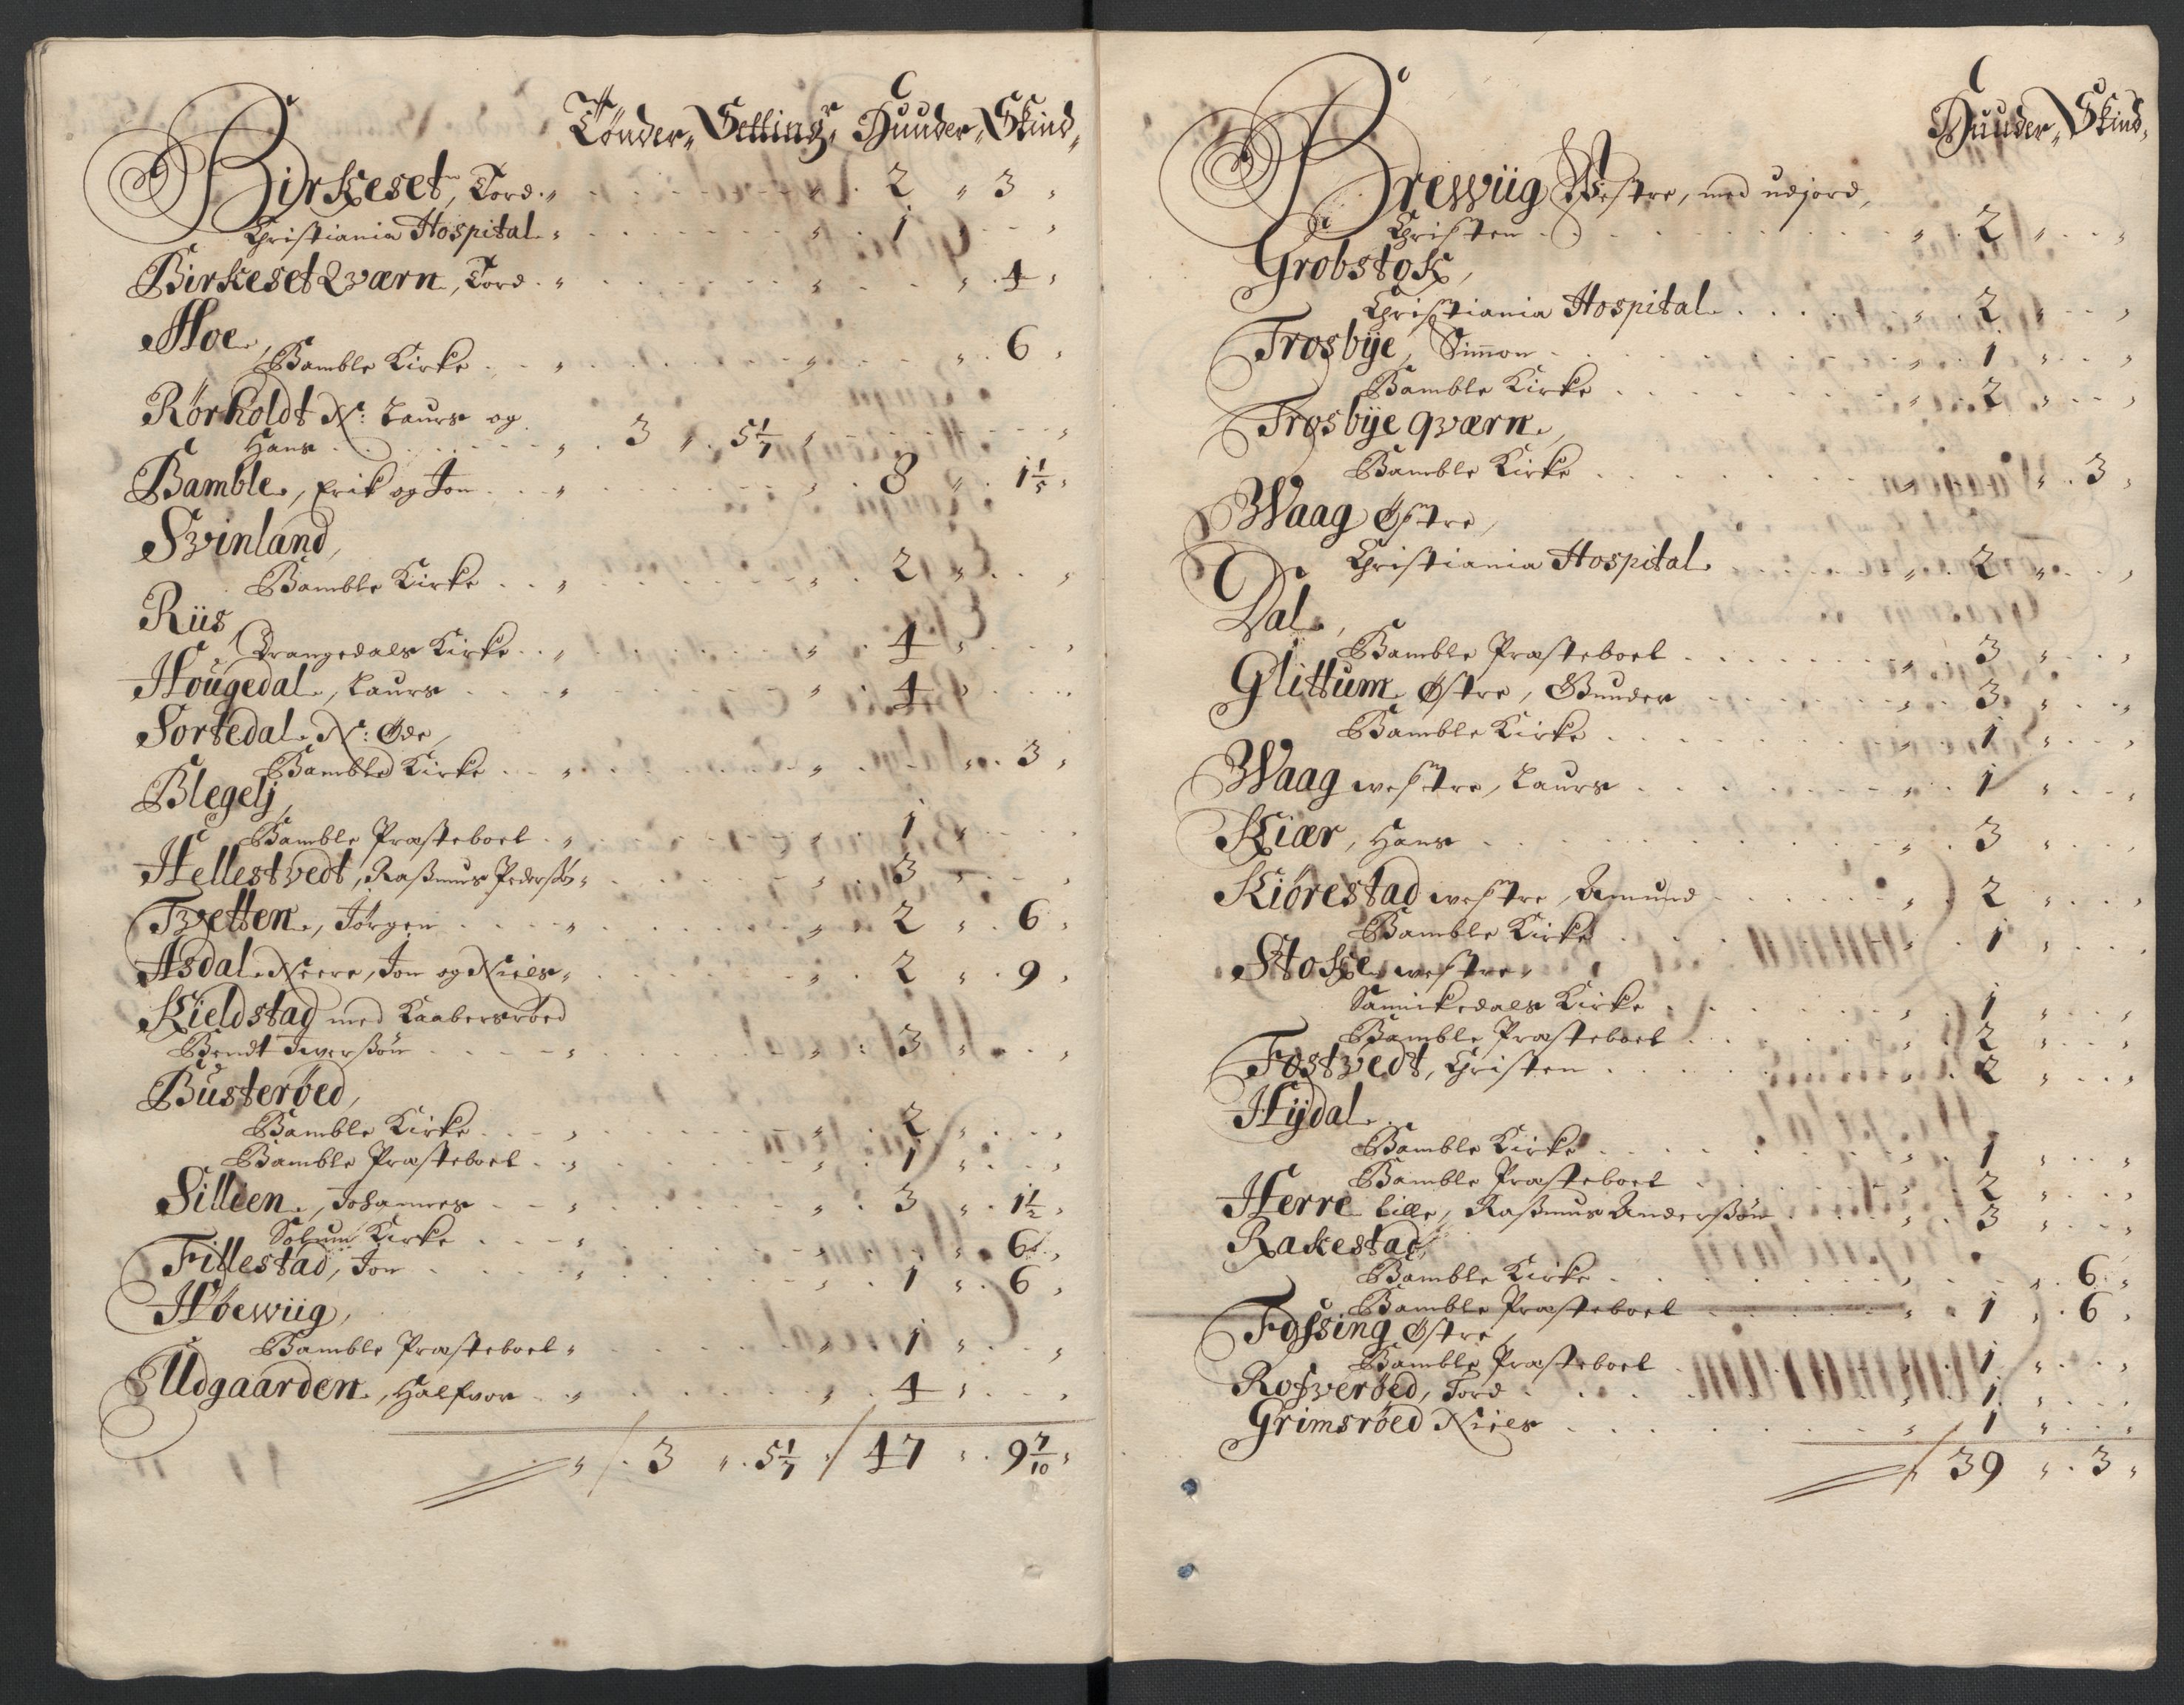 Tönder, Setting, Huuder, Skind,
Birkeset, Tord 2 3
Christiania Hospital 1
Birkeset Qværn, Tord 4
Hoe,
Bamble Kirke 6
Rörholdt N: Laurs og
Hans 3 5 1/7
Bamble, Erik og Jon 8 1 1/5
Svinland,
Bamble Kirke 2
Riis,
Drangedals Kirke 4
Hougedal, Laurs 4
Sortedal N: Øde,
Bamble Kirke 3
Blegelj,
Bamble Præsteboel 1
Hellestvedt, Rasmus Pedersøn 3
Tvetten, Jörgen 2 6
Asdal Neere, Jon og Niels 2 9
Kieldstad med Kaabersröed
Bendt Iversøn 3
Busteröed,
Bamble Kirke 2
Bamble Præsteboel 1
Sillien, Johannes 3 1 1/2
Solum Kirke 6
Fillestad, Jon 1 6
Höewiig,
Bamble Præsteboel 1
Udgaarden, Halfvor 4
3 5 1/7 47 9 7/10
Huuder, Skind,
Brewiig Westre, med udjord,
Christen 2
Grobstok,
Christiania Hospital 2
Trosbye, Simon 1
Bamble Kirke 2
Trosbye qværn,
Bamble Kirke 3
Waag Østre,
Christiania Hospital 2
Dal,
Bamble Præsteboel 3
Glittum Østre, Gunder 3
Bamble Kirke 1
Waag westre, Laurs 1
Kiær, Hans 3
Kiörestad westre, Amund 2
Bamble Kirke 1
Stokke westre
Sannikedals Kirke 1
Bamble Præsteboel 2
Fostvedt, Christen 2
Hydal
Bamble Kirke 1
Bamble Præsteboel 2
Herre Lille, Rasmus Andersøn 3
Rakestad,
Bamble Kirke 6
Bamble Præsteboel 1 6
Fossing Østre,
Bamble Præsteboel 1
Rosveröed, Tord 1
Grimsröed Niels 1
39 3